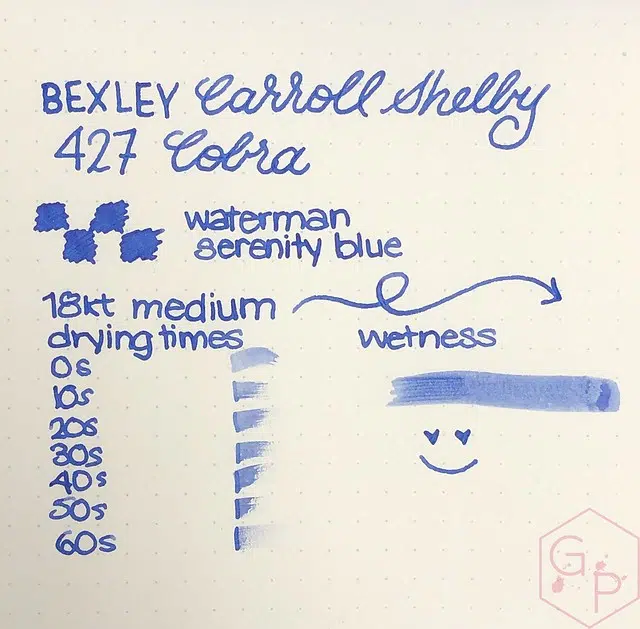 BEXLEY Carroll Shelby
427 Cobra
waterman
serenity blue
18kt medium
drying times
wetness
0s
10s
20s
30s
40s
50s
60s
GP